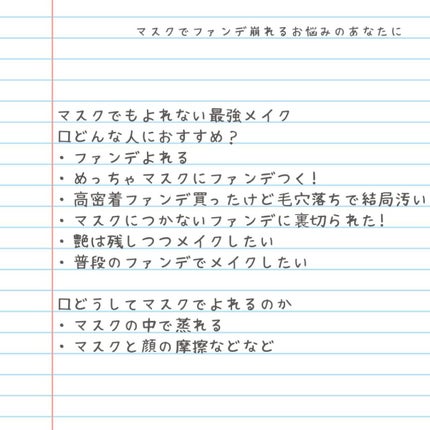 マスクでファンデ崩れるお悩みのあなたに
マスクでもよれない最強メイク
口どんな人におすすめ？
・ファンデよれる
・めっちゃマスクにファンデつく！
・高密着ファンデ買ったけど毛穴落ちで結局汚い
・マスクにつかないファンデに裏切られた！
・艶は残しつつメイクしたい
・普段のファンデでメイクしたい
口どうしてマスクでよれるのか
・マスクの中で蒸れる
・マスクと顔の摩擦などなど